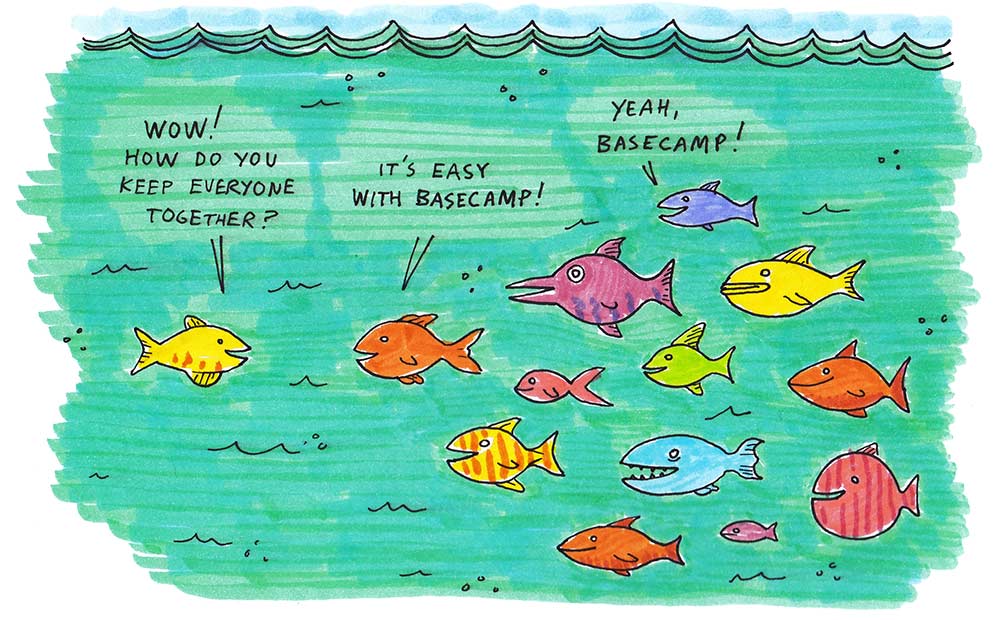 WOW!
HOW DO YOU
KEEP EVERYONE
TOGETHER?
IT'S EASY
WITH BASECAMP!
YEAH,
BASECAMP!